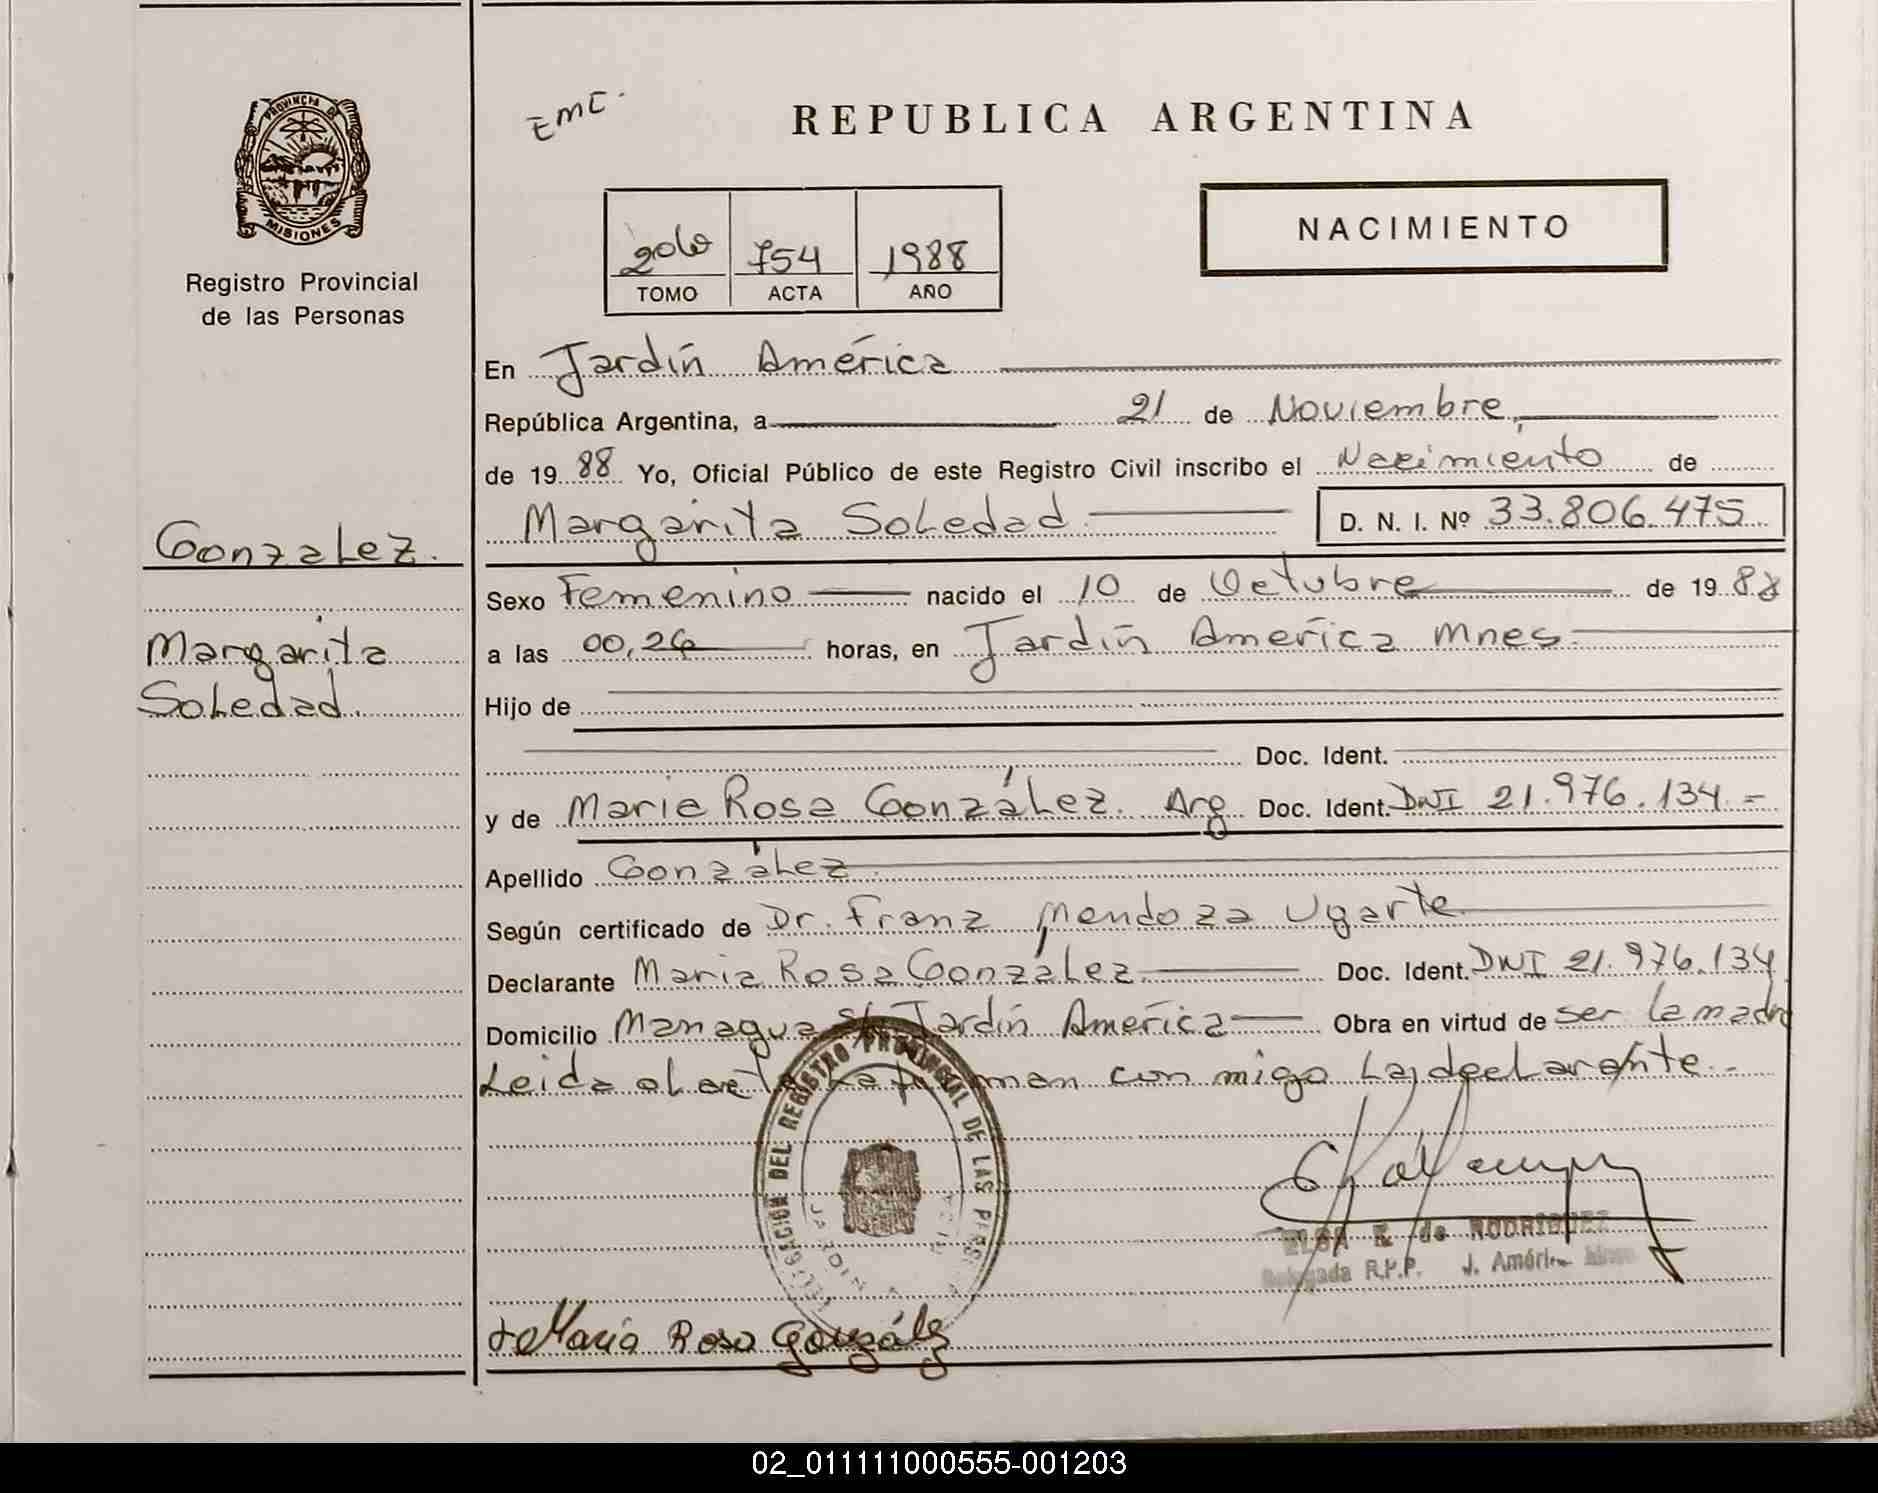 PROVINCIA DE
MISIONES
Registro Provincial
de las Personas
Gonzalez.
Margarita
Soledad.
EMC.
REPUBLICA ARGENTINA
NACIMIENTO
754 1988
TOMO ACTA AÑO
En Jardín América
República Argentina, a 21 de Noviembre,
de 19 88 Yo, Oficial Público de este Registro Civil inscribo el Nacimiento de
Margarita Soledad D. N. I. Nº 33.806.475
Sexo Femenino nacido el 10 de Octubre de 19 88
a las horas, en Jardín América Mnes.
Hijo de
Doc. Ident.
y de Maria Rosa González. Arg Doc. Ident. DNI 21.976.134.=
Apellido González
Según certificado de Dr. Franz Mendoza Ugarte
Declarante Maria Rosa González Doc. Ident. DNI 21.976.134
Domicilio Managua s/n Jardín América Obra en virtud de ser la madre
Leida el acta la firman con migo la declarante.-
DELEGACION DEL REGISTRO PROVINCIAL DE LAS PERSONAS
JARDIN AMERICA
ELSA E. de RODRIGUEZ
Delegada R.P.P. J. América Mnes
María Rosa González
02_011111000555-001203